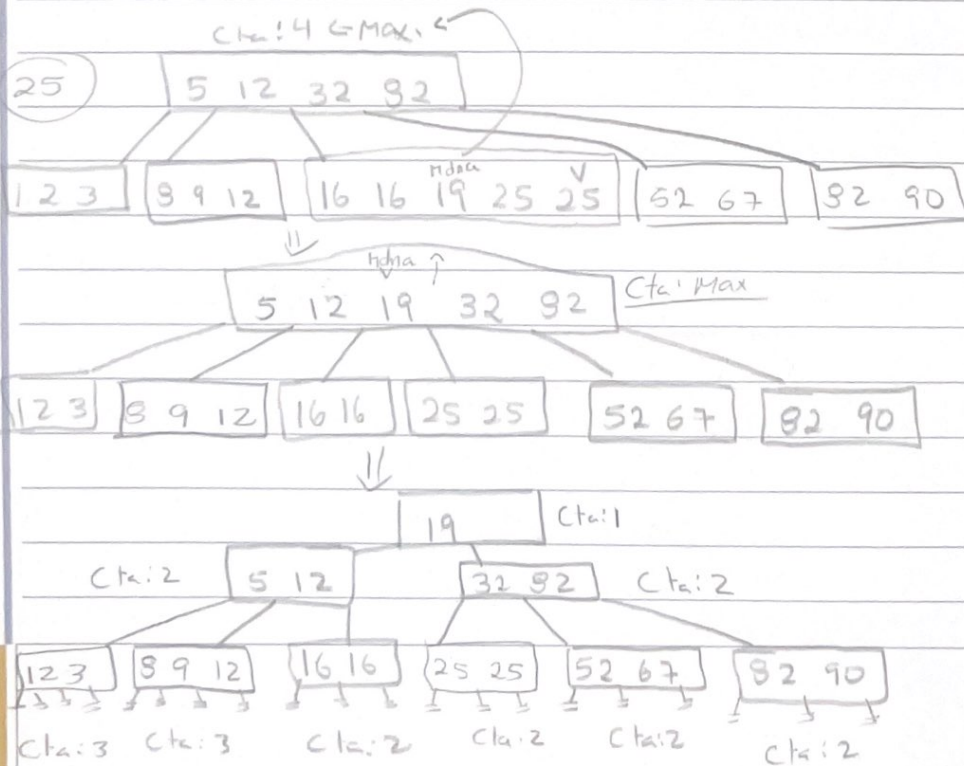 Cta: 4 ⇐ Max.
25
5 12 32 82
1 2 3
8 9 12
Mdna
16 16 19 25 25
52 67
82 90
⇓
Mdna ↑
5 12 19 32 82
Cta: Max
1 2 3
8 9 12
16 16
25 25
52 67
82 90
⇓
19
Cta: 1
Cta: 2
5 12
32 82
Cta: 2
1 2 3
8 9 12
16 16
25 25
52 67
82 90
Cta: 3
Cta: 3
Cta: 2
Cta: 2
Cta: 2
Cta: 2